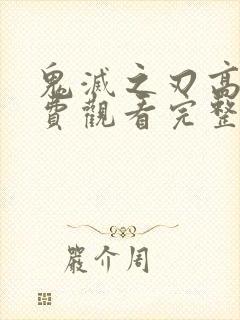 鬼滅之刃高
費觀看完整
嚴介周